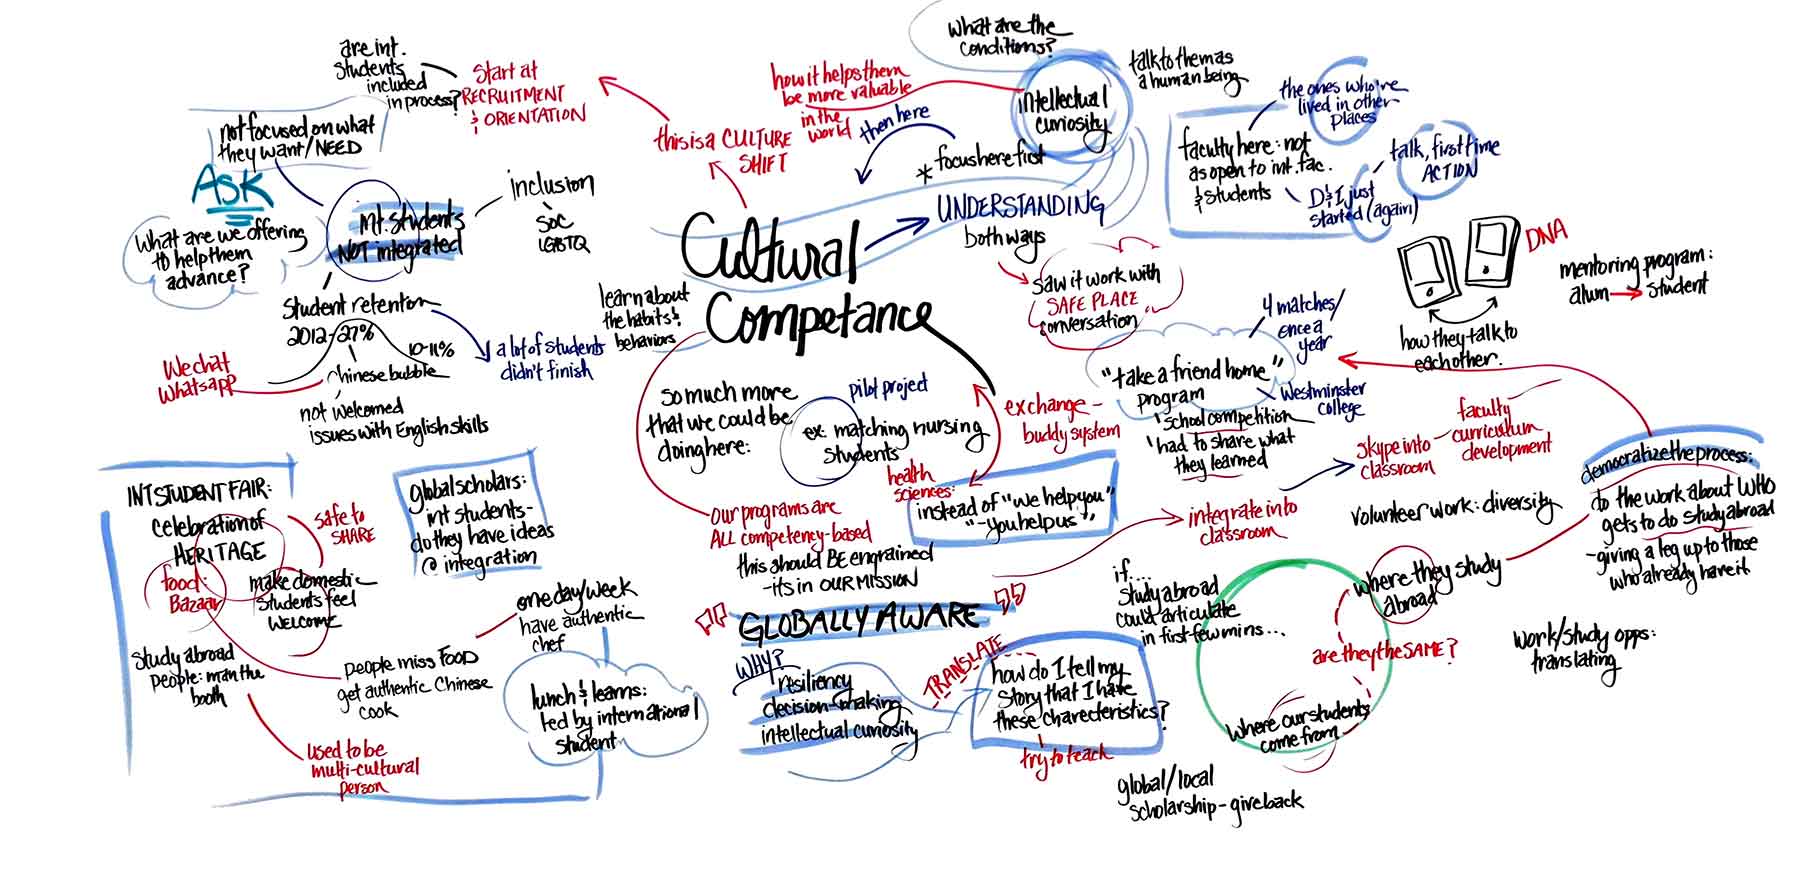 are int.
students
included
in process?
start at
RECRUITMENT
& ORIENTATION
not focused on what
they want/NEED
ASK
What are we offering
to help them
advance?
int. students
NOT integrated
inclusion
SOC
LGBTQ
student retention
2012-27%
10-11%
Chinese bubble
We chat
Whatsapp
not welcomed
issues with English skills
a lot of students
didn't finish
this is a CULTURE
SHIFT
how it helps them
be more valuable
in the
world
then here
What are the
conditions?
intellectual
curiosity
* focus here first
Cultural
Competance
UNDERSTANDING
both ways
saw it work with
SAFE PLACE
conversation
talk to them as
a human being
the ones who've
lived in other
places
faculty here: not
as open to int. fac.
& students
talk, first time
ACTION
D&I just
started (again)
DNA
how they talk to
each other.
mentoring program:
alum → student
4 matches/
once a
year
"take a friend home"
program
Westminster
college
'school competition
'had to share what
they learned
learn about
the habits &
behaviors
so much more
that we could be
doing here:
pilot project
ex: matching nursing
students
health
sciences:
exchange -
buddy system
instead of "we help you"
"-you help us"
our programs are
ALL competency-based
this should BE engrained
-its in OUR MISSION
integrate into
classroom
skype into
classroom
faculty
curriculum
development
volunteer work: diversity
democratize the process:
do the work about WHO
gets to do study abroad
-giving a leg up to those
who already have it
INT STUDENT FAIR:
celebration of
HERITAGE
safe to
SHARE
food:
Bazaar
make domestic
students feel
WELCOME
study abroad
people: man the
booth
used to be
multi-cultural
person
people miss FOOD
get authentic Chinese
cook
global scholars:
int students-
do they have ideas
@ integration
one day/week
have authentic
chef
lunch & learns:
led by international
student
GLOBALLY AWARE
WHY?
resiliency
decision-making
intellectual curiosity
TRANSLATE
how do I tell my
story that I have
these charecteristics?
try to teach
if...
study abroad
could articulate
in first few mins...
where they study
abroad
are they the SAME?
where our students
come from
work/study opps:
translating
global/local
scholarship-give back